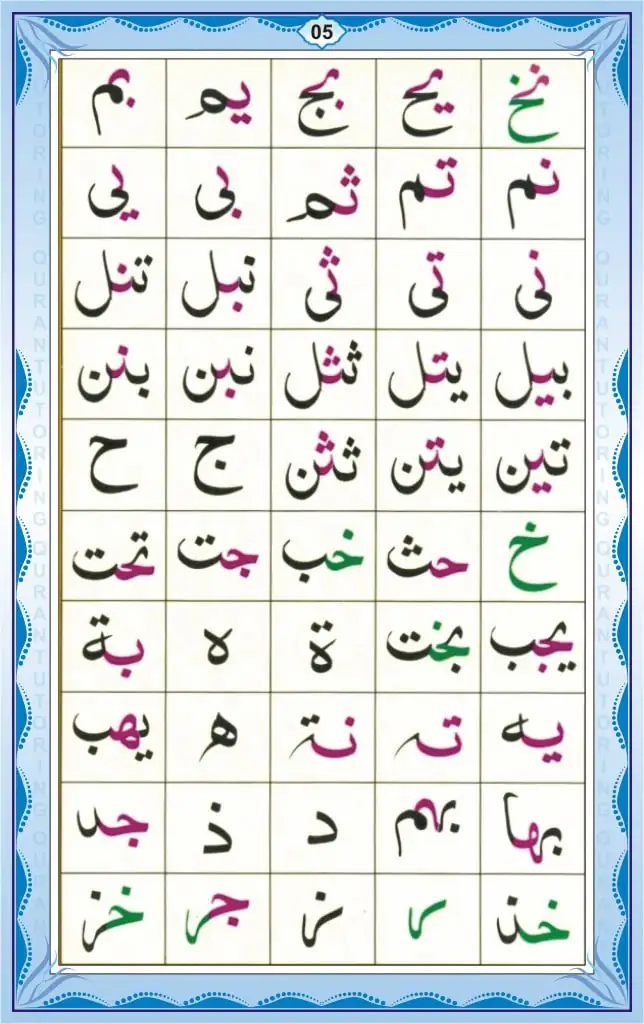 05
نخ يح بج يم بم
نم تم ثم بى يى
نى تى ثى نبل تنل
بيل يتل ثثل نبن بنن
تين يتن ثثن ج ح
خ حث خب جت تحت
يجب بخت ة ه بة
يه ته نة ه يهب
بها بهم د ذ جد
خذ ر ز جر خز
QURANTUTORING QURANTUTORING
QURANTUTORING QURANTUTORING